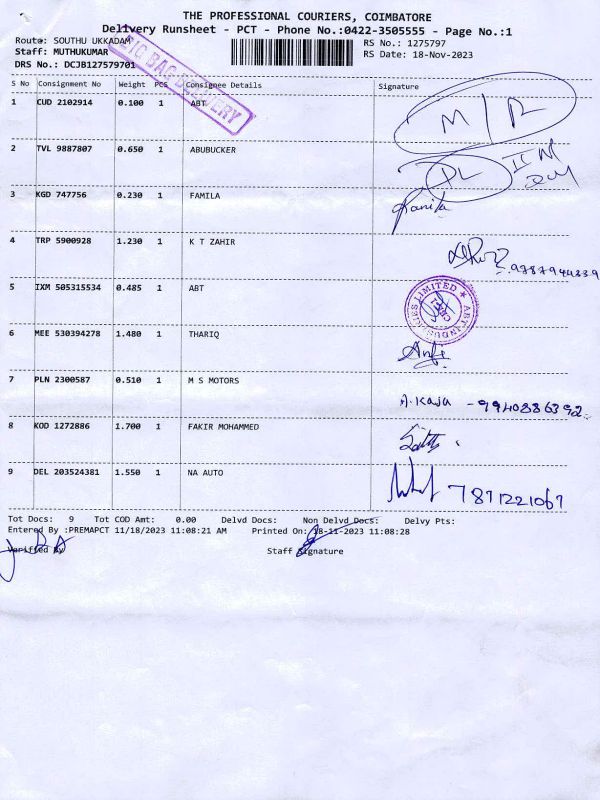 THE PROFESSIONAL COURIERS, COIMBATORE
Delivery Runsheet - PCT - Phone No.:0422-3505555 - Page No.:1
Route: SOUTHU UKKADAM
RS No.: 1275797
Staff: MUTHUKUMAR
RS Date: 18-Nov-2023
DRS No.: DCJB127579701
BIG BAG DELIVERY
S No Consignment No Weight PCS Consignee Details Signature
1 CUD 2102914 0.100 1 ABT M/R
2 TVL 9887807 0.650 1 ABUBUCKER DL
3 KGD 747756 0.230 1 FAMILA
4 TRP 5900928 1.230 1 K T ZAHIR 9787944339
5 IXM 505315534 0.485 1 ABT ABT INDUSTRIES LIMITED
6 MEE 530394278 1.480 1 THARIQ
7 PLN 2300587 0.510 1 M S MOTORS A. Kaja - 9940886392
8 KOD 1272886 1.700 1 FAKIR MOHAMMED
9 DEL 203524381 1.550 1 NA AUTO 7871221067
Tot Docs: 9 Tot COD Amt: 0.00 Delvd Docs: Non Delvd Docs: Delvy Pts:
Entered By :PREMAPCT 11/18/2023 11:08:21 AM Printed On: 18-11-2023 11:08:28
Verified By Staff Signature